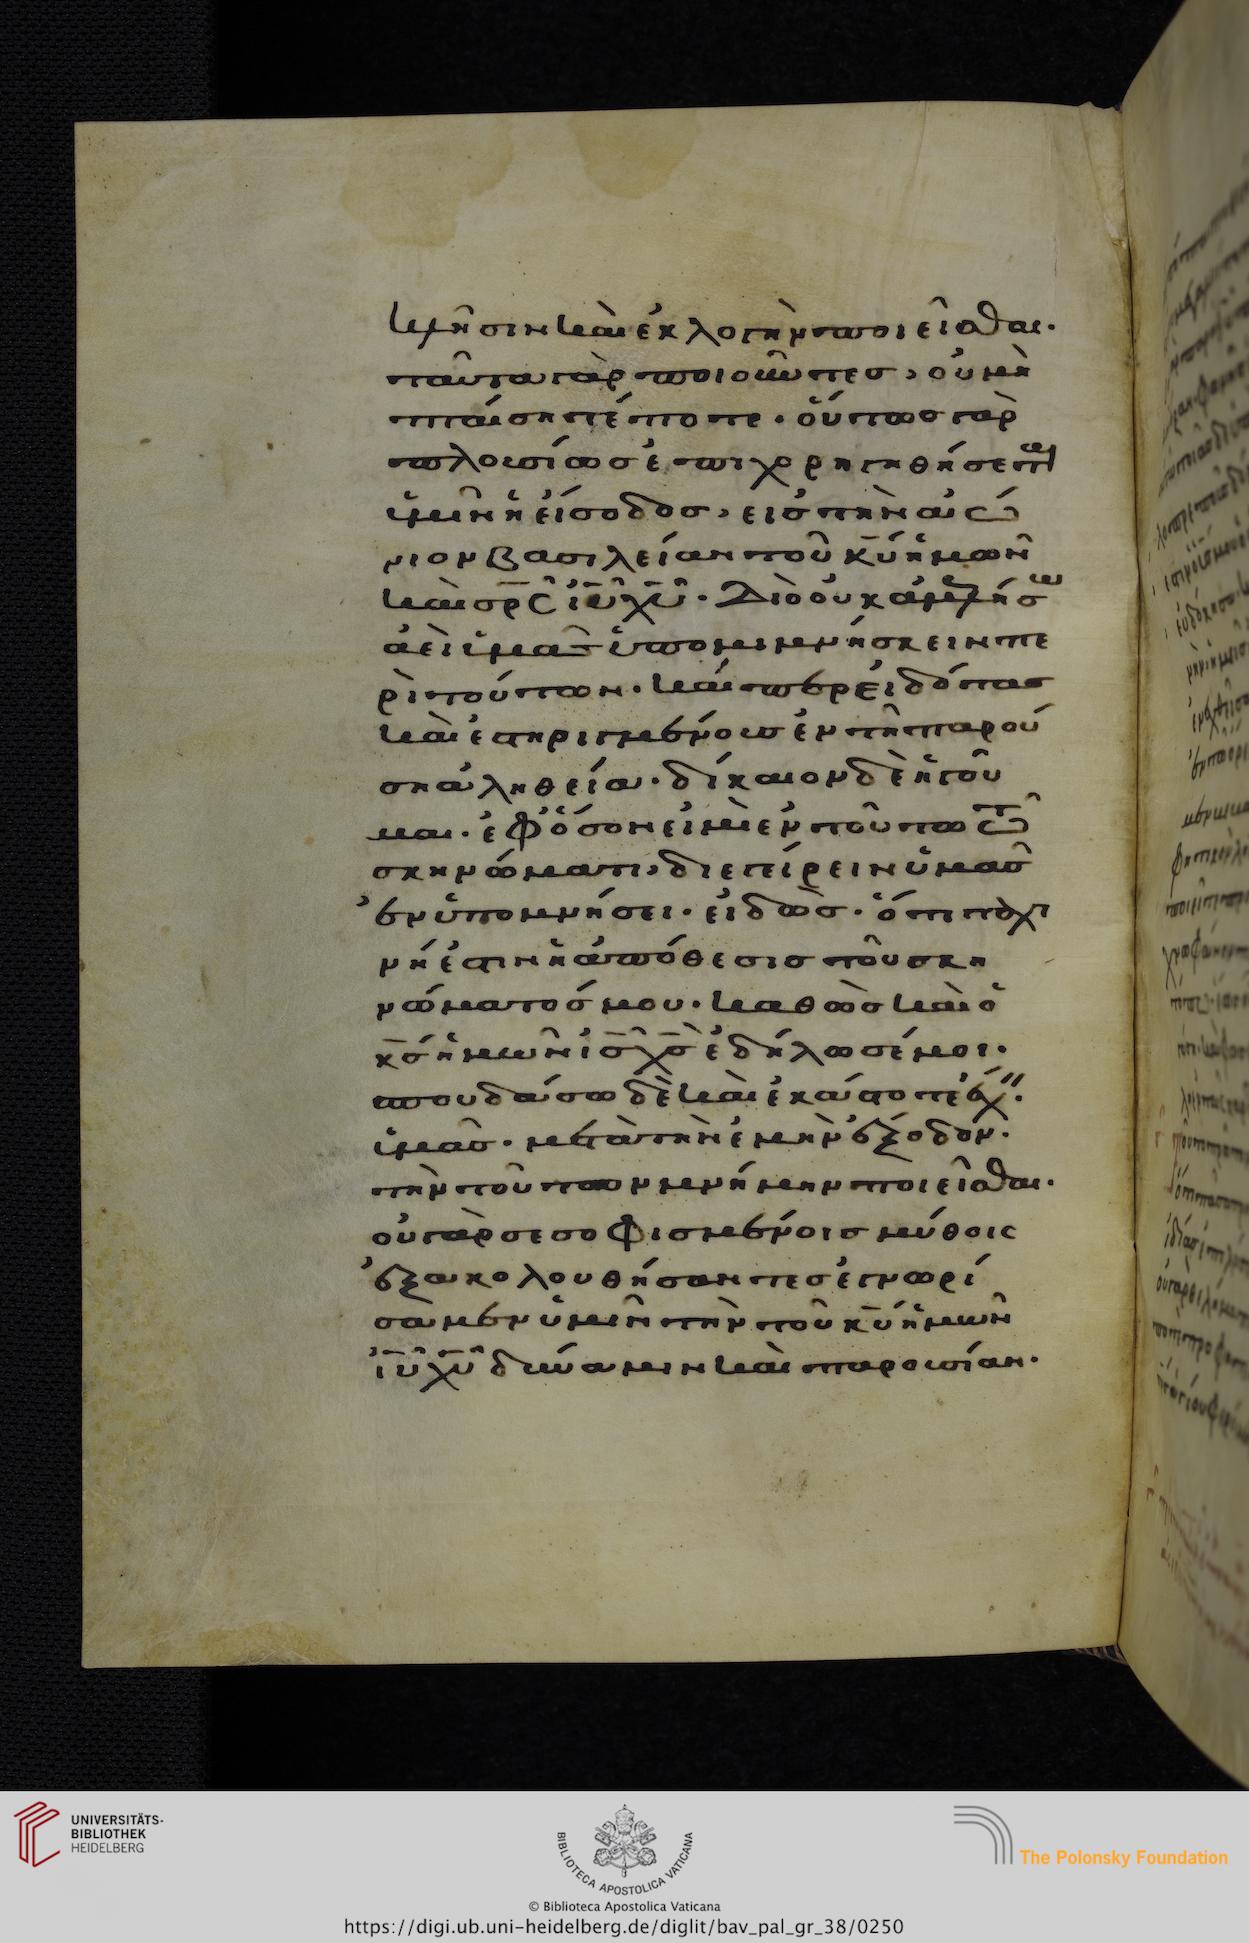 κλῆσιν καὶ ἐκλογὴν ποιεῖσθαι·
ταῦτα γὰρ ποιοῦντες, οὐ μὴ
πταίσητέ ποτε· οὕτως γὰρ
πλουσίως ἐπιχορηγηθήσεται
ὑμῖν ἡ εἴσοδος, εἰς τὴν αἰώ
νιον βασιλείαν τοῦ κ̅υ̅ ἡμῶν
καὶ σρ̅ς ι̅υ̅ χ̅υ̅· Διὸ οὐκ ἀμελήσω
ἀεὶ ὑμᾶς ὑπομιμνήσκειν πε
ρὶ τούτων· καίπερ εἰδότας
καὶ ἐστηριγμένους ἐν τῇ παρού
σῃ ἀληθεία· δίκαιον δὲ ἡγοῦ
μαι· ἐφ' ὅσον εἰμὶ ἐν τούτω τῶ
σκηνώματι, διεγείρειν ὑμᾶς
ἐν ὑπομνήσει· εἰδὼς· ὅτι ταχι
νή ἐστιν ἡ ἀπόθεσις τοῦ σκη
νώματός μου· καθὼς καὶ ὁ
κ̅ς̅ ἡμῶν ι̅ς̅ χ̅ς̅ ἐδήλωσέ μοι·
σπουδάσω δὲ καὶ ἑκάστοτε ἔχειν
ὑμᾶς· μετὰ τὴν ἐμὴν ἔξοδον·
τὴν τούτων μνήμην ποιεῖσθαι·
οὐ γὰρ σεσοφισμένοις μύθοις
ἐξακολουθήσαντες ἐγνωρί
σαμεν ὑμῖν τὴν τοῦ κ̅υ̅ ἡμῶν
ι̅υ̅ χ̅υ̅ δύναμιν καὶ παρουσίαν·
UNIVERSITÄTS-
BIBLIOTHEK
HEIDELBERG
BIBLIOTECA APOSTOLICA VATICANA
The Polonsky Foundation
© Biblioteca Apostolica Vaticana
https://digi.ub.uni-heidelberg.de/diglit/bav_pal_gr_38/0250